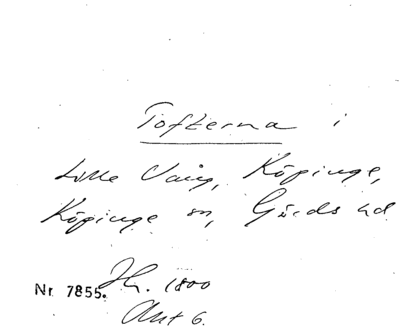 Tofterna i
Lille Vång, Köpinge,
Köpinge sn, Gärds hd
Nr 7855. Hr. 1800
Akt 6.